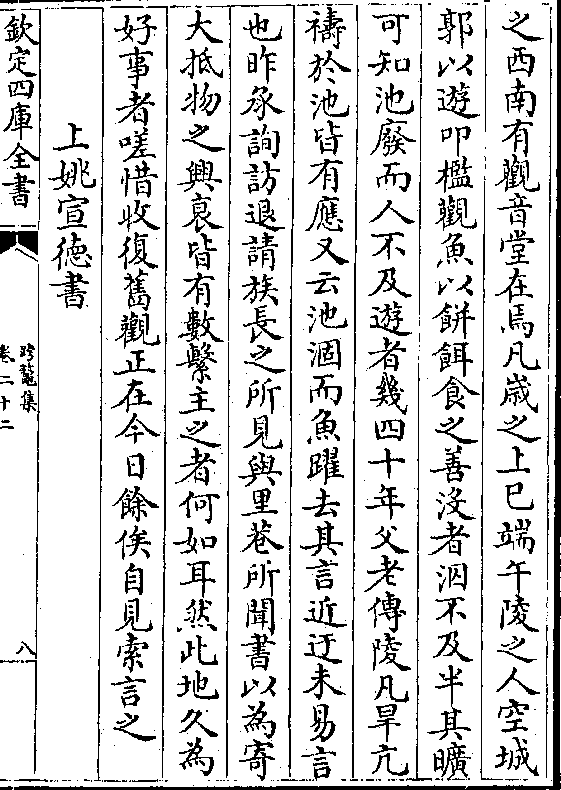 之西南有觀音堂在焉凡歲之上巳端午陵之人空城
郭以遊叩檻觀魚以餅餌食之善没者泅不及半其曠
可知池廢而人不及遊者幾四十年父老傳陵凡旱亢
禱於池皆有應又云池涸而魚躍去其言近迂未易言
也昨承詢訪退請族長之所見與里巷所聞書以為寄
大抵物之興衰皆有數繫主之者何如耳然此地久為
好事者嗟惜收復舊觀正在今日餘俟自見索言之
上姚宣徳書
欽定四庫全書
跨鼇集
卷二十二
八